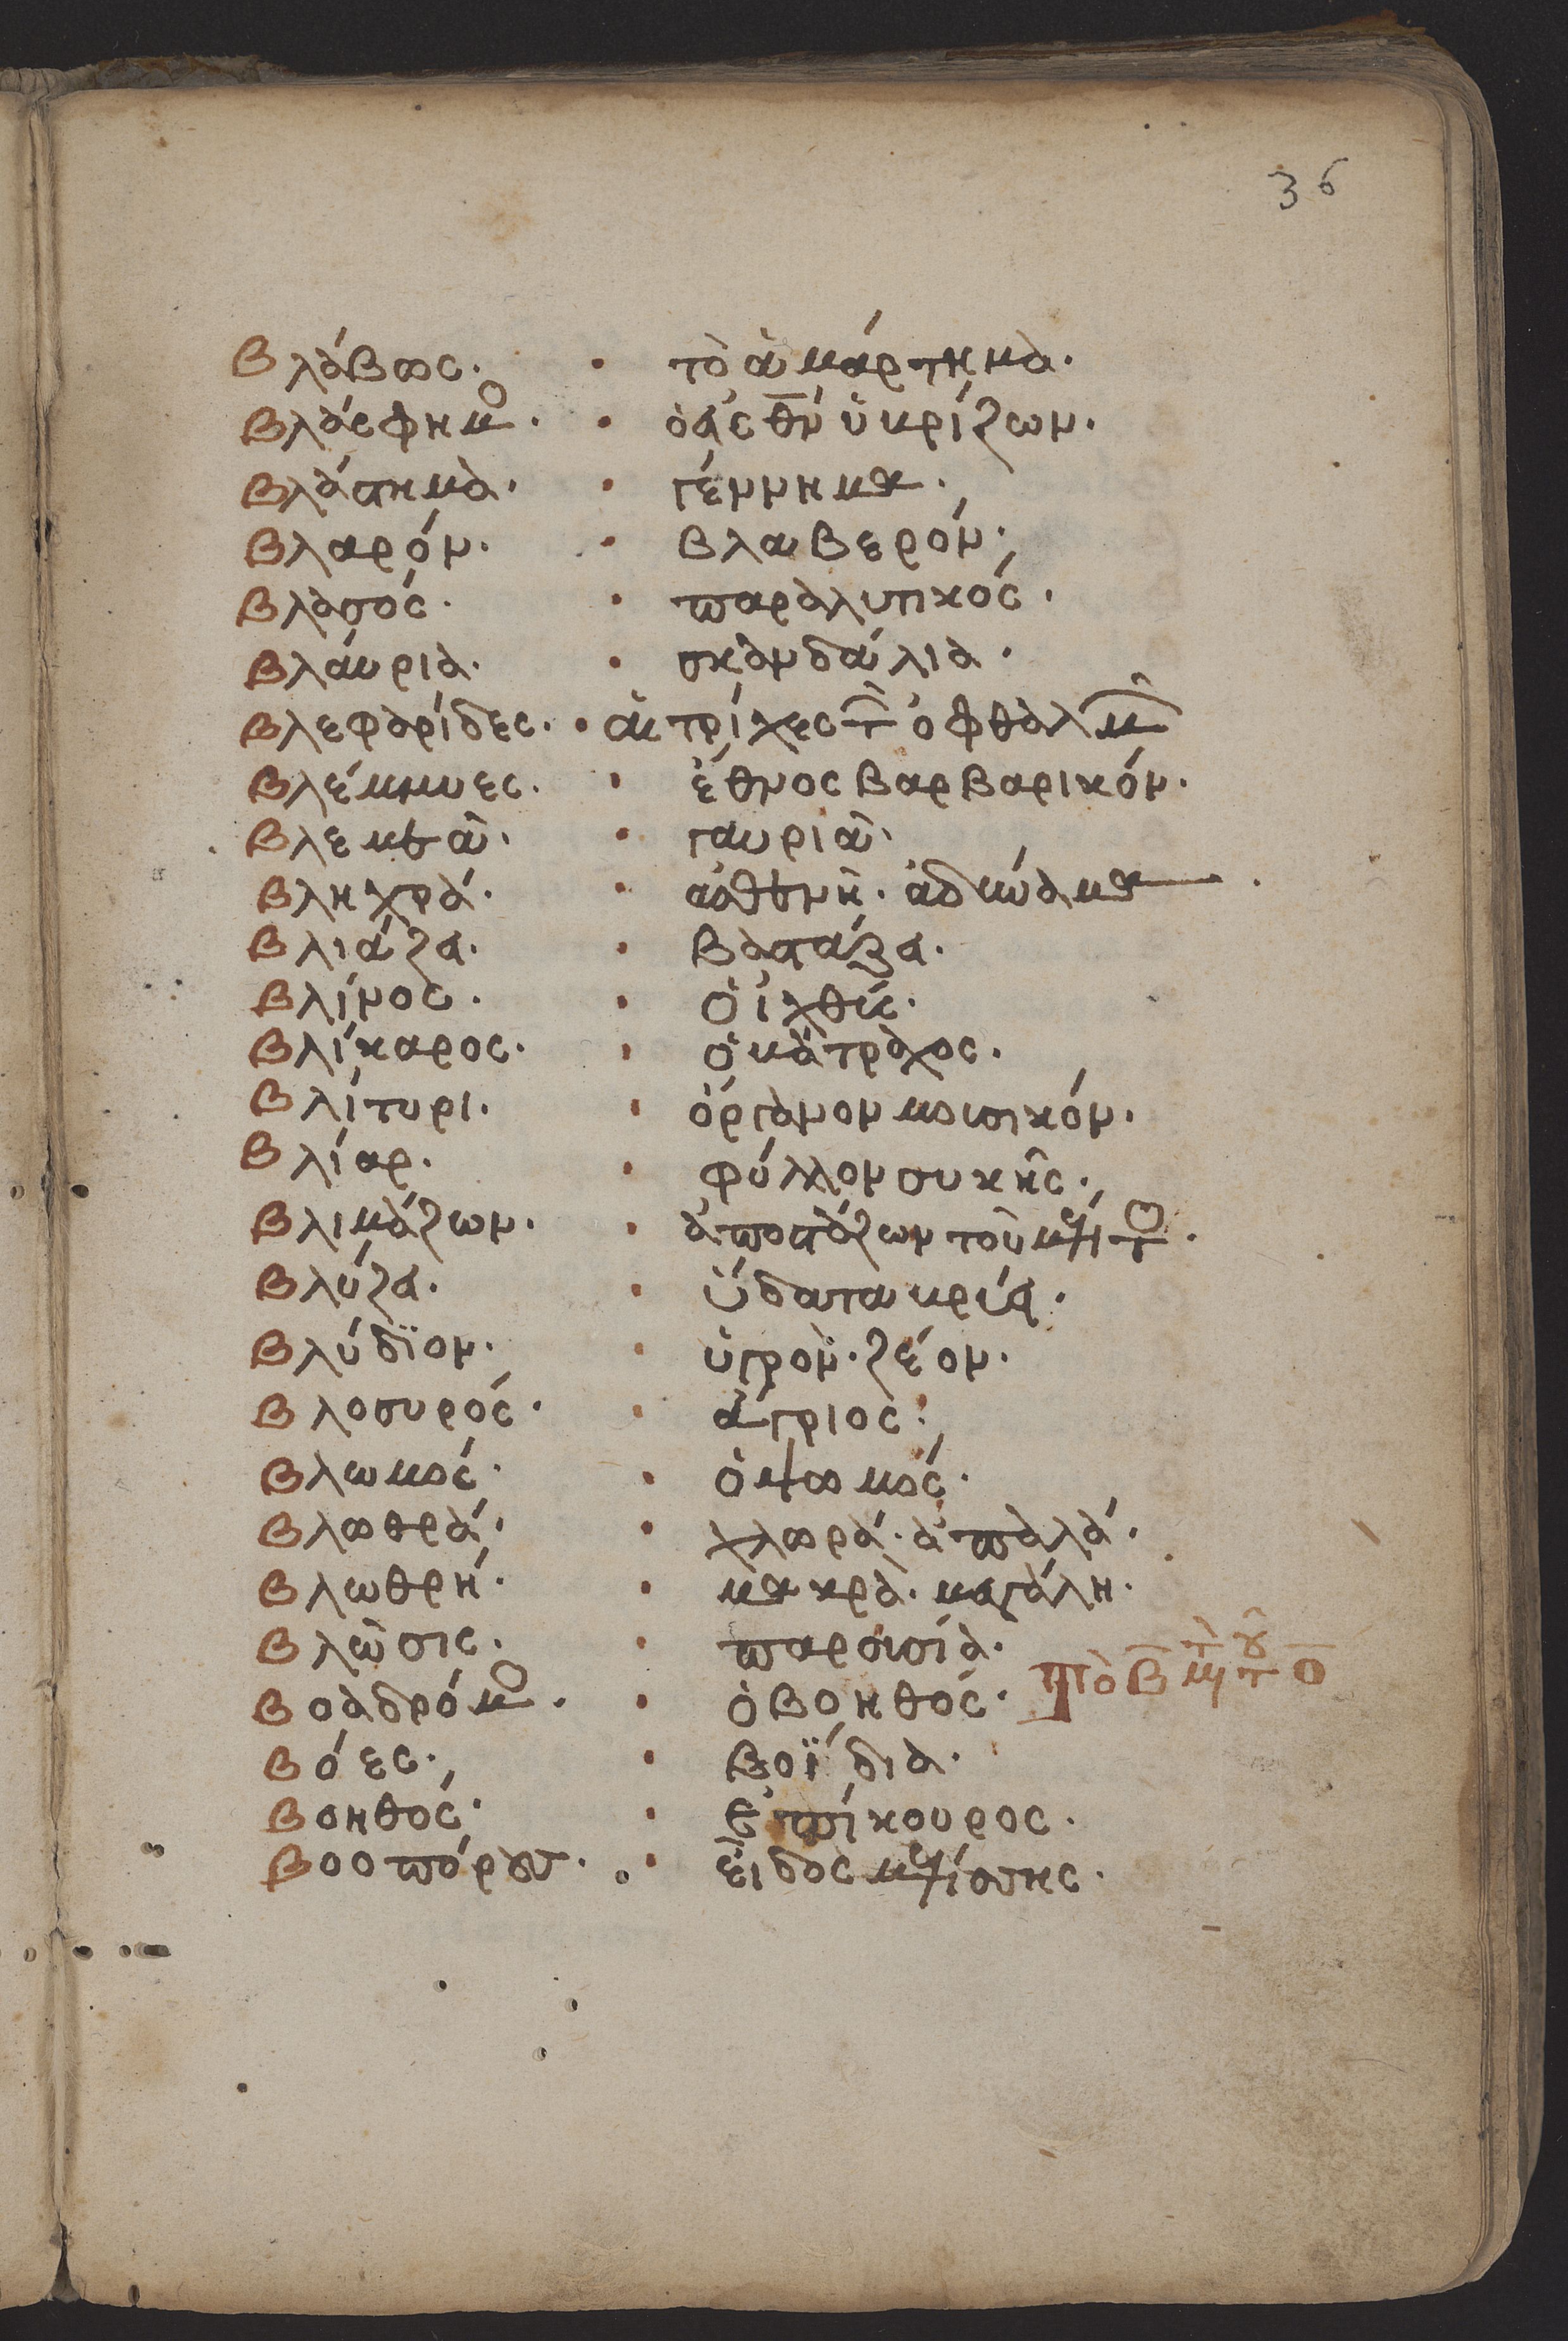 36
βλάβως. · τὸ ἁμάρτημα.
βλάσφημο. · ὁ εἰς θν ὑβρίζων.
βλάστημα. · γέννημα.
βλαρόν. · βλαβερόν.
βλασός. · παραλυτικός.
βλάυρια. · σκανδάλια.
βλεφαρίδες. · ἁι τρίχες τ ὀφθαλμ
βλέμμυες. · ἔθνος βαρβαρικόν.
βλεμεᾶ. · γαυριᾶ.
βληχρά. · ἀσθενῆ.
βλιάζει. · βαστάζει.
βλίνος. · ὁ ἰχθύς.
βλίκαρος. · ὁ βάτραχος.
βλίτυρι. · ὄργανον μουσικόν.
βλίαρ. · φύλλον συκῆς.
βλιμάζων. · ἀποστάζων τοῦ μέλιτο.
βλύζει. · ὕδατα βρύει.
βλύδϊον. · ὑγρὸν. ζέον.
βλοσυρός. · ἄγριος.
βλωμός. · ὁ ψωμός.
βλωθρά. · χλωρά. ἁπαλά.
βλωθρή. · μακρὰ. μεγάλη.
βλῶσις. · παρουσία.
βοαδρόμο. · ὁ βοηθός.
τὸ β μτ τ ο
βόες. · βοΐδια.
βοηθός. · ἐπίκουρος.
βοοπόρον. · εἶδος